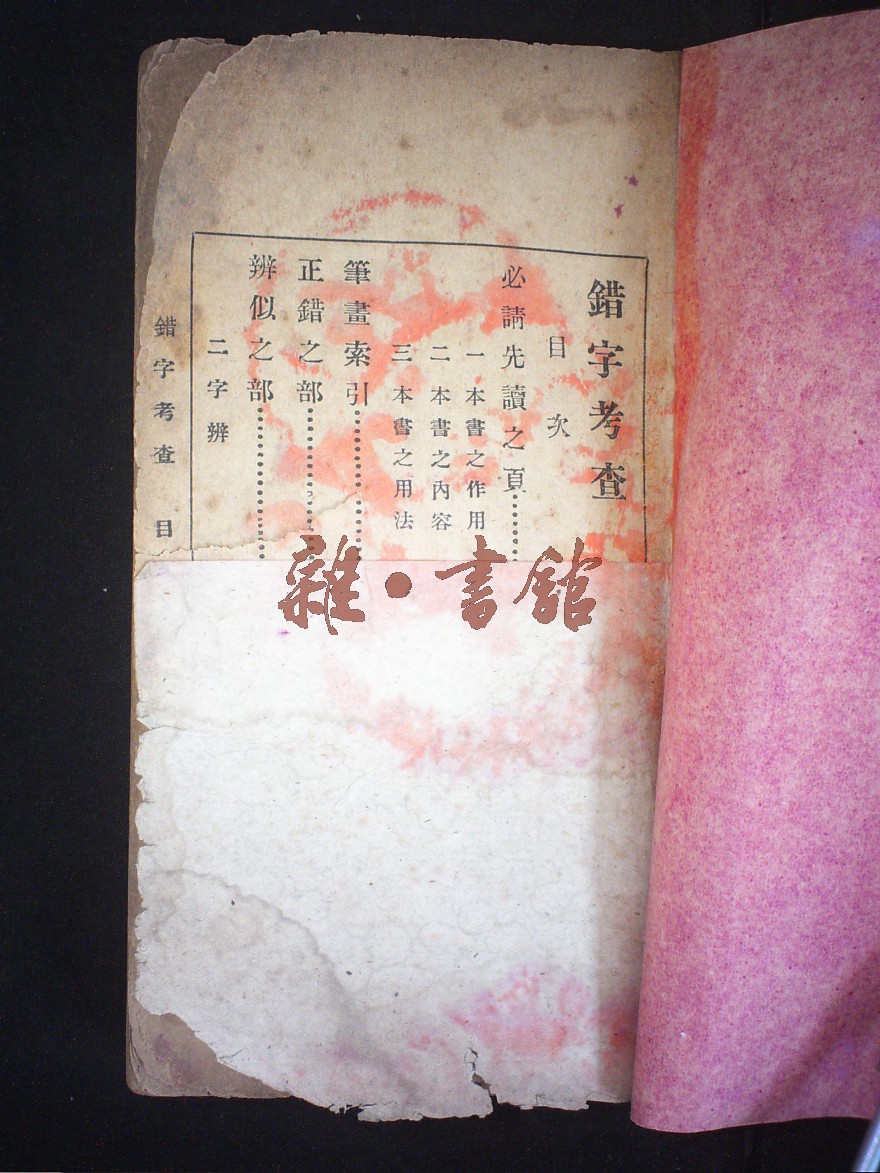 錯字考查
目次
必請先讀之頁
一 本書之作用
二 本書之內容
三 本書之用法
筆畫索引
正錯之部
辨似之部
二字辨
錯字考查 目
雜·書館